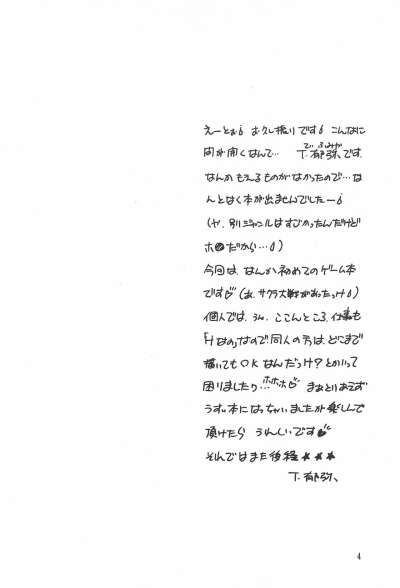 えーとぉ♂ お久し振りです♂ こんなに
間が開くなんて… T.郁弥です。
なんかもえるものがなかったので…な
んとなく本が出ませんでしたー♂
(ヤ、別ジャンルはすごかったんだけど
ホ●だから…♂)
今回は、なんか初めてのゲーム本
です♡(あ、サクラ大戦があったっけ♂)
個人では、うん、ここんところ、仕事も
「Hなの」なので、同人の方は、どこまで
描いてもOKなんだっけ?とかって
困りましたり…ホホホ♡ まぁとりあえず
うすい本になっちゃいましたが楽しんで
頂けたら うれしいです♡
それではまた後程★★★
T.郁弥、
4